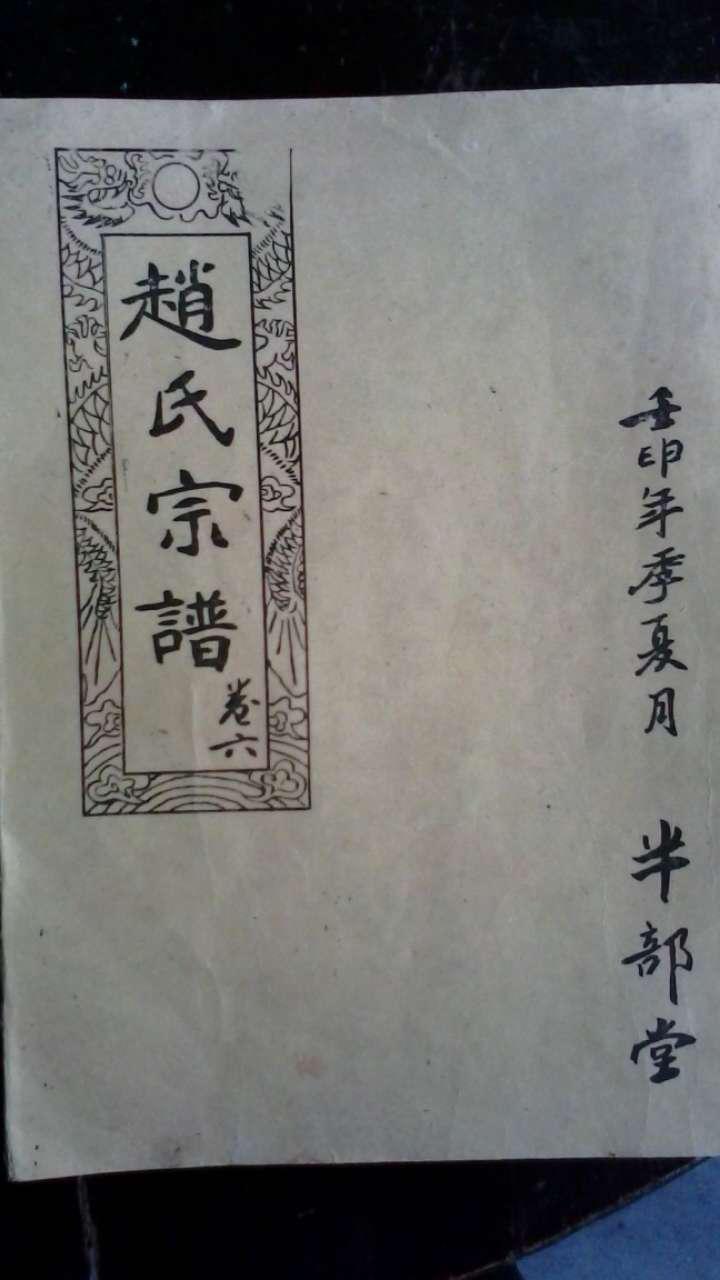 壬申年季夏月 半部堂
趙氏宗譜
卷六